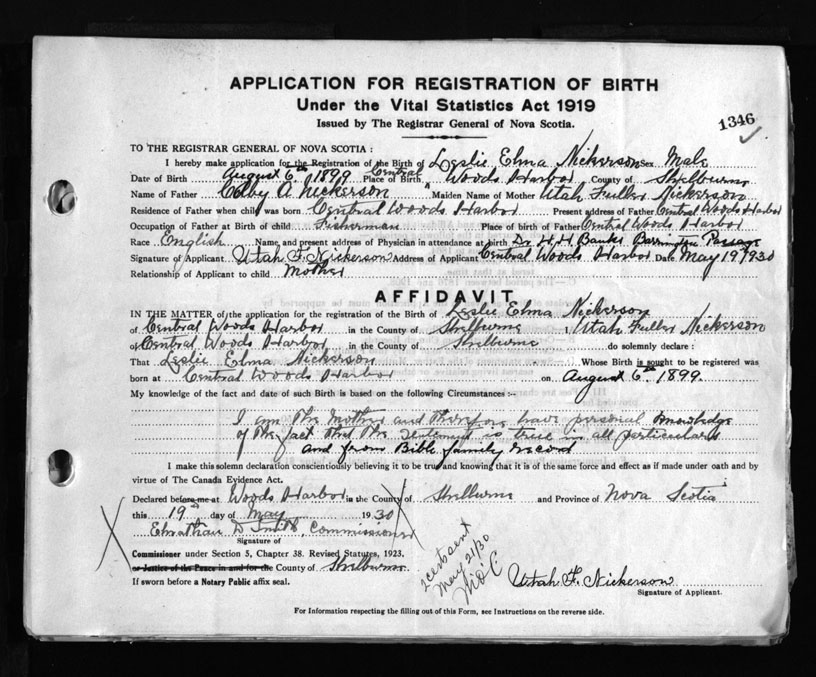 APPLICATION FOR REGISTRATION OF BIRTH
Under the Vital Statistics Act 1919
Issued by The Registrar General of Nova Scotia.
1346
TO THE REGISTRAR GENERAL OF NOVA SCOTIA :
I hereby make application for the Registration of the Birth of Leslie Elma Nickerson Sex Male
Date of Birth August 6th 1899 Place of Birth Central Woods Harbor County of Shelburne
Name of Father Colby A. Nickerson Maiden Name of Mother Utah Fuller Nickerson
Residence of Father when child was born Central Woods Harbor Present address of Father Central Woods Harbor
Occupation of Father at Birth of child Fisherman Place of birth of Father Central Woods Harbor
Race English Name, and present address of Physician in attendance at birth Dr H. H. Banks Barrington Passage
Signature of Applicant Utah F. Nickerson Address of Applicant Central Woods Harbor Date May 19 1930
Relationship of Applicant to child Mother
AFFIDAVIT
IN THE MATTER of the application for the registration of the Birth of Leslie Elma Nickerson
of Central Woods Harbor in the County of Shelburne I Utah Fuller Nickerson
of Central Woods Harbor in the County of Shelburne do solemnly declare :
That Leslie Elma Nickerson Whose Birth is sought to be registered was
born at Central Woods Harbor on August 6th 1899.
My knowledge of the fact and date of such Birth is based on the following Circumstances :-
I am the Mother and therefore have personal knowledge
of the fact that the statement is true in all particulars
and from Bible family record
I make this solemn declaration conscientiously believing it to be true and knowing that it is of the same force and effect as if made under oath and by
virtue of The Canada Evidence Act.
Declared before me at Woods Harbor in the County of Shelburne and Province of Nova Scotia
this 19th day of May 1930
Elnathan D Smith, Commissioner
Signature of
Commissioner under Section 5, Chapter 38. Revised Statutes, 1923,
or Justice of the Peace in and for the County of Shelburne
If sworn before a Notary Public affix seal.
2 cert sent
May 21/30
Utah F. Nickerson
Signature of Applicant.
For Information respecting the filling out of this Form, see Instructions on the reverse side.